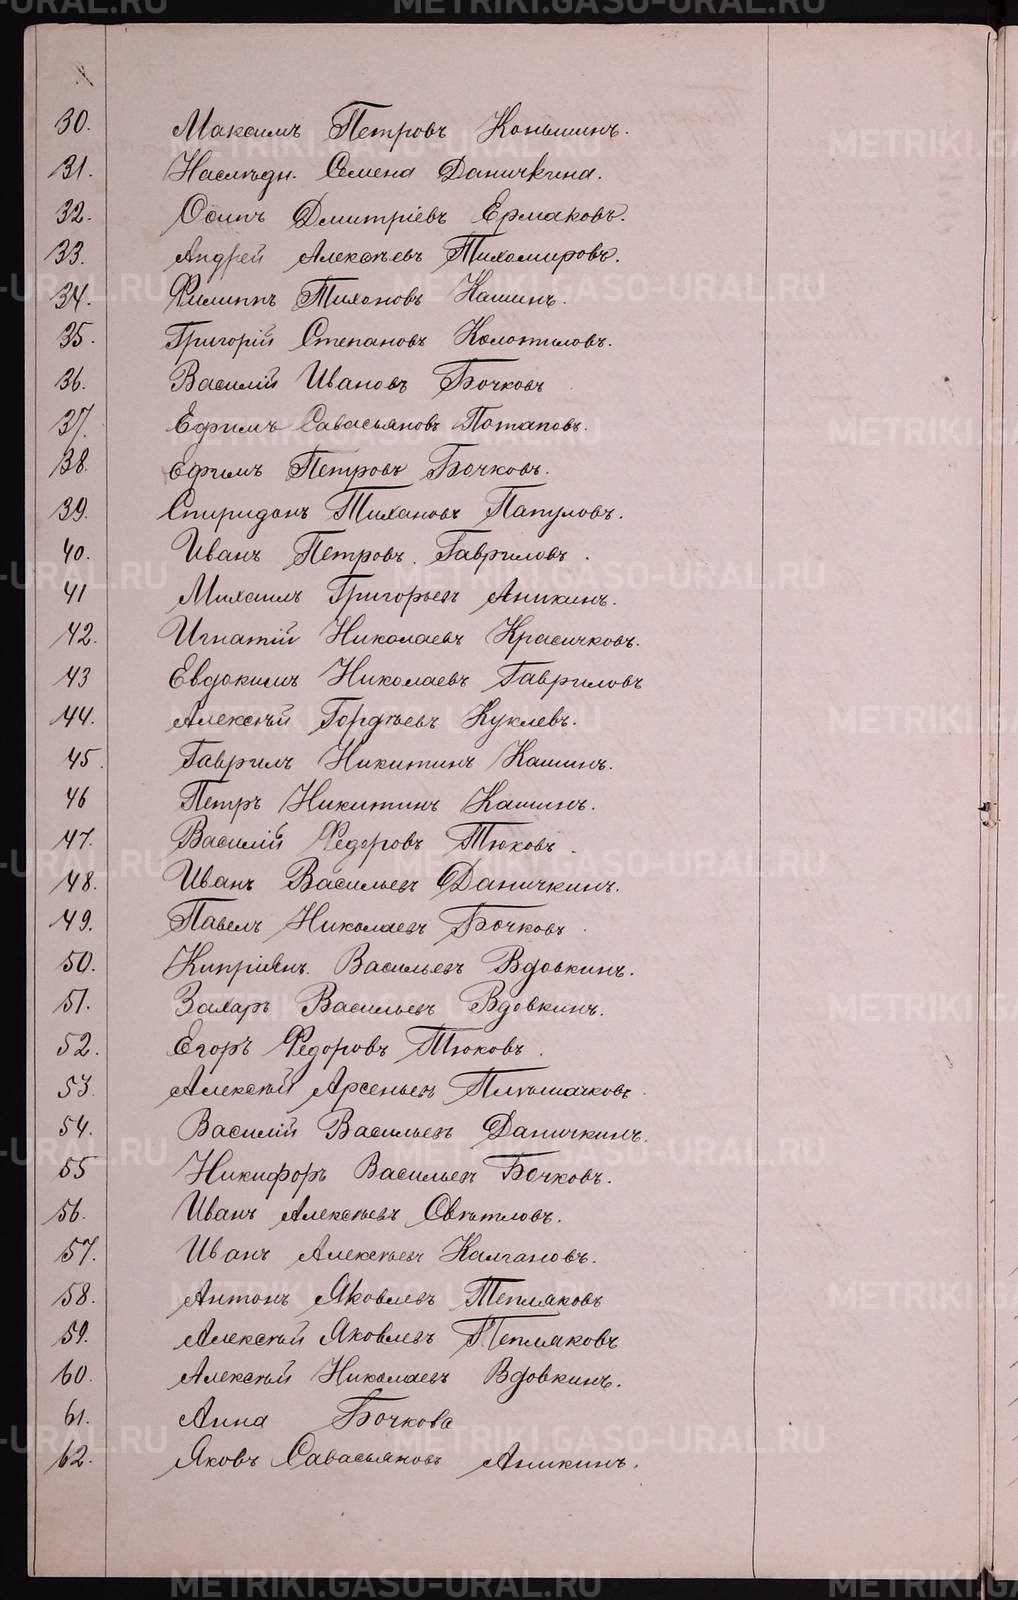 30. Максимъ Петровъ Коньшинъ.
31. Наслѣдн. Семена Даничкина.
32. Осипъ Дмитріевъ Ермаковъ.
33. Андрей Алексѣевъ Тихомировъ.
34. Филиппъ Тихоновъ Кашинъ.
35. Григорій Степановъ Колотиловъ.
36. Василій Ивановъ Бочковъ
37. Ефимъ Савасьяновъ Потаповъ.
38. Ефимъ Петровъ Бочковъ.
39. Спиридонъ Тихановъ Папуловъ.
40. Иванъ Петровъ. Гавриловъ.
41 Михаилъ Григорьевъ Аникинъ.
42. Игнатій Николаевъ Красичковъ.
43 Евдокимъ Николаевъ Гавриловъ
44. Алексѣй Гордѣевъ Куклевъ.
45. Гаврилъ Никитинъ Кашинъ.
46 Петръ Никитинъ Кашинъ.
47. Василій Федоровъ Тюковъ.
48. Иванъ Васильевъ Даничкинъ.
49. Павелъ Николаевъ Бочковъ.
50. Кипріянъ. Васильевъ Вдовкинъ.
51. Захаръ Васильевъ Вдовкинъ.
52. Егоръ Федоровъ Тюковъ.
53. Алексѣй Арсеньевъ
54. Василій Васильевъ Даничкинъ.
55 Никифоръ Васильевъ Бочковъ.
56. Иванъ Алексѣевъ Свѣтловъ.
57. Иванъ Алексѣевъ Калгановъ.
58. Антонъ Яковлевъ Тепляковъ
59. Алексѣй Яковлевъ Тепляковъ
60. Алексѣй Николаевъ Вдовкинъ.
61. Анна Бочкова
62. Яковъ Савасьяновъ Аникинъ.
METRIKI.GASO-URAL.RU